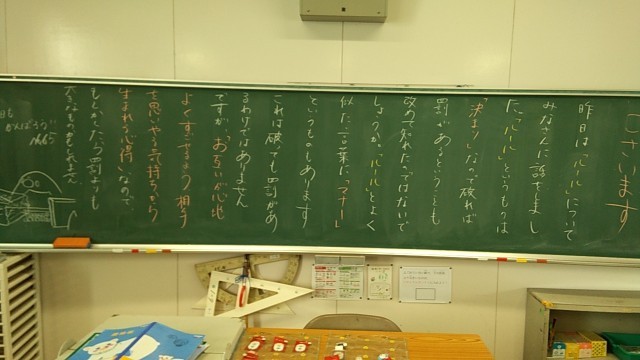 ございます
昨日は「ルール」について
みなさんに話をしまし
た。「ルール」というものは
決まりなので破れば
罰があるということも
改めて分れたのではないで
しょうか。「ルール」とよく
似た言葉に「マナー」
というものもあります
これは破っても罰があ
るわけではありません
ですが、お互いが心地
よくすごせるよう相手
を思いやる気持ちから
生まれる心得なので
もしかしたら罰よりも
大きなものかもしれません